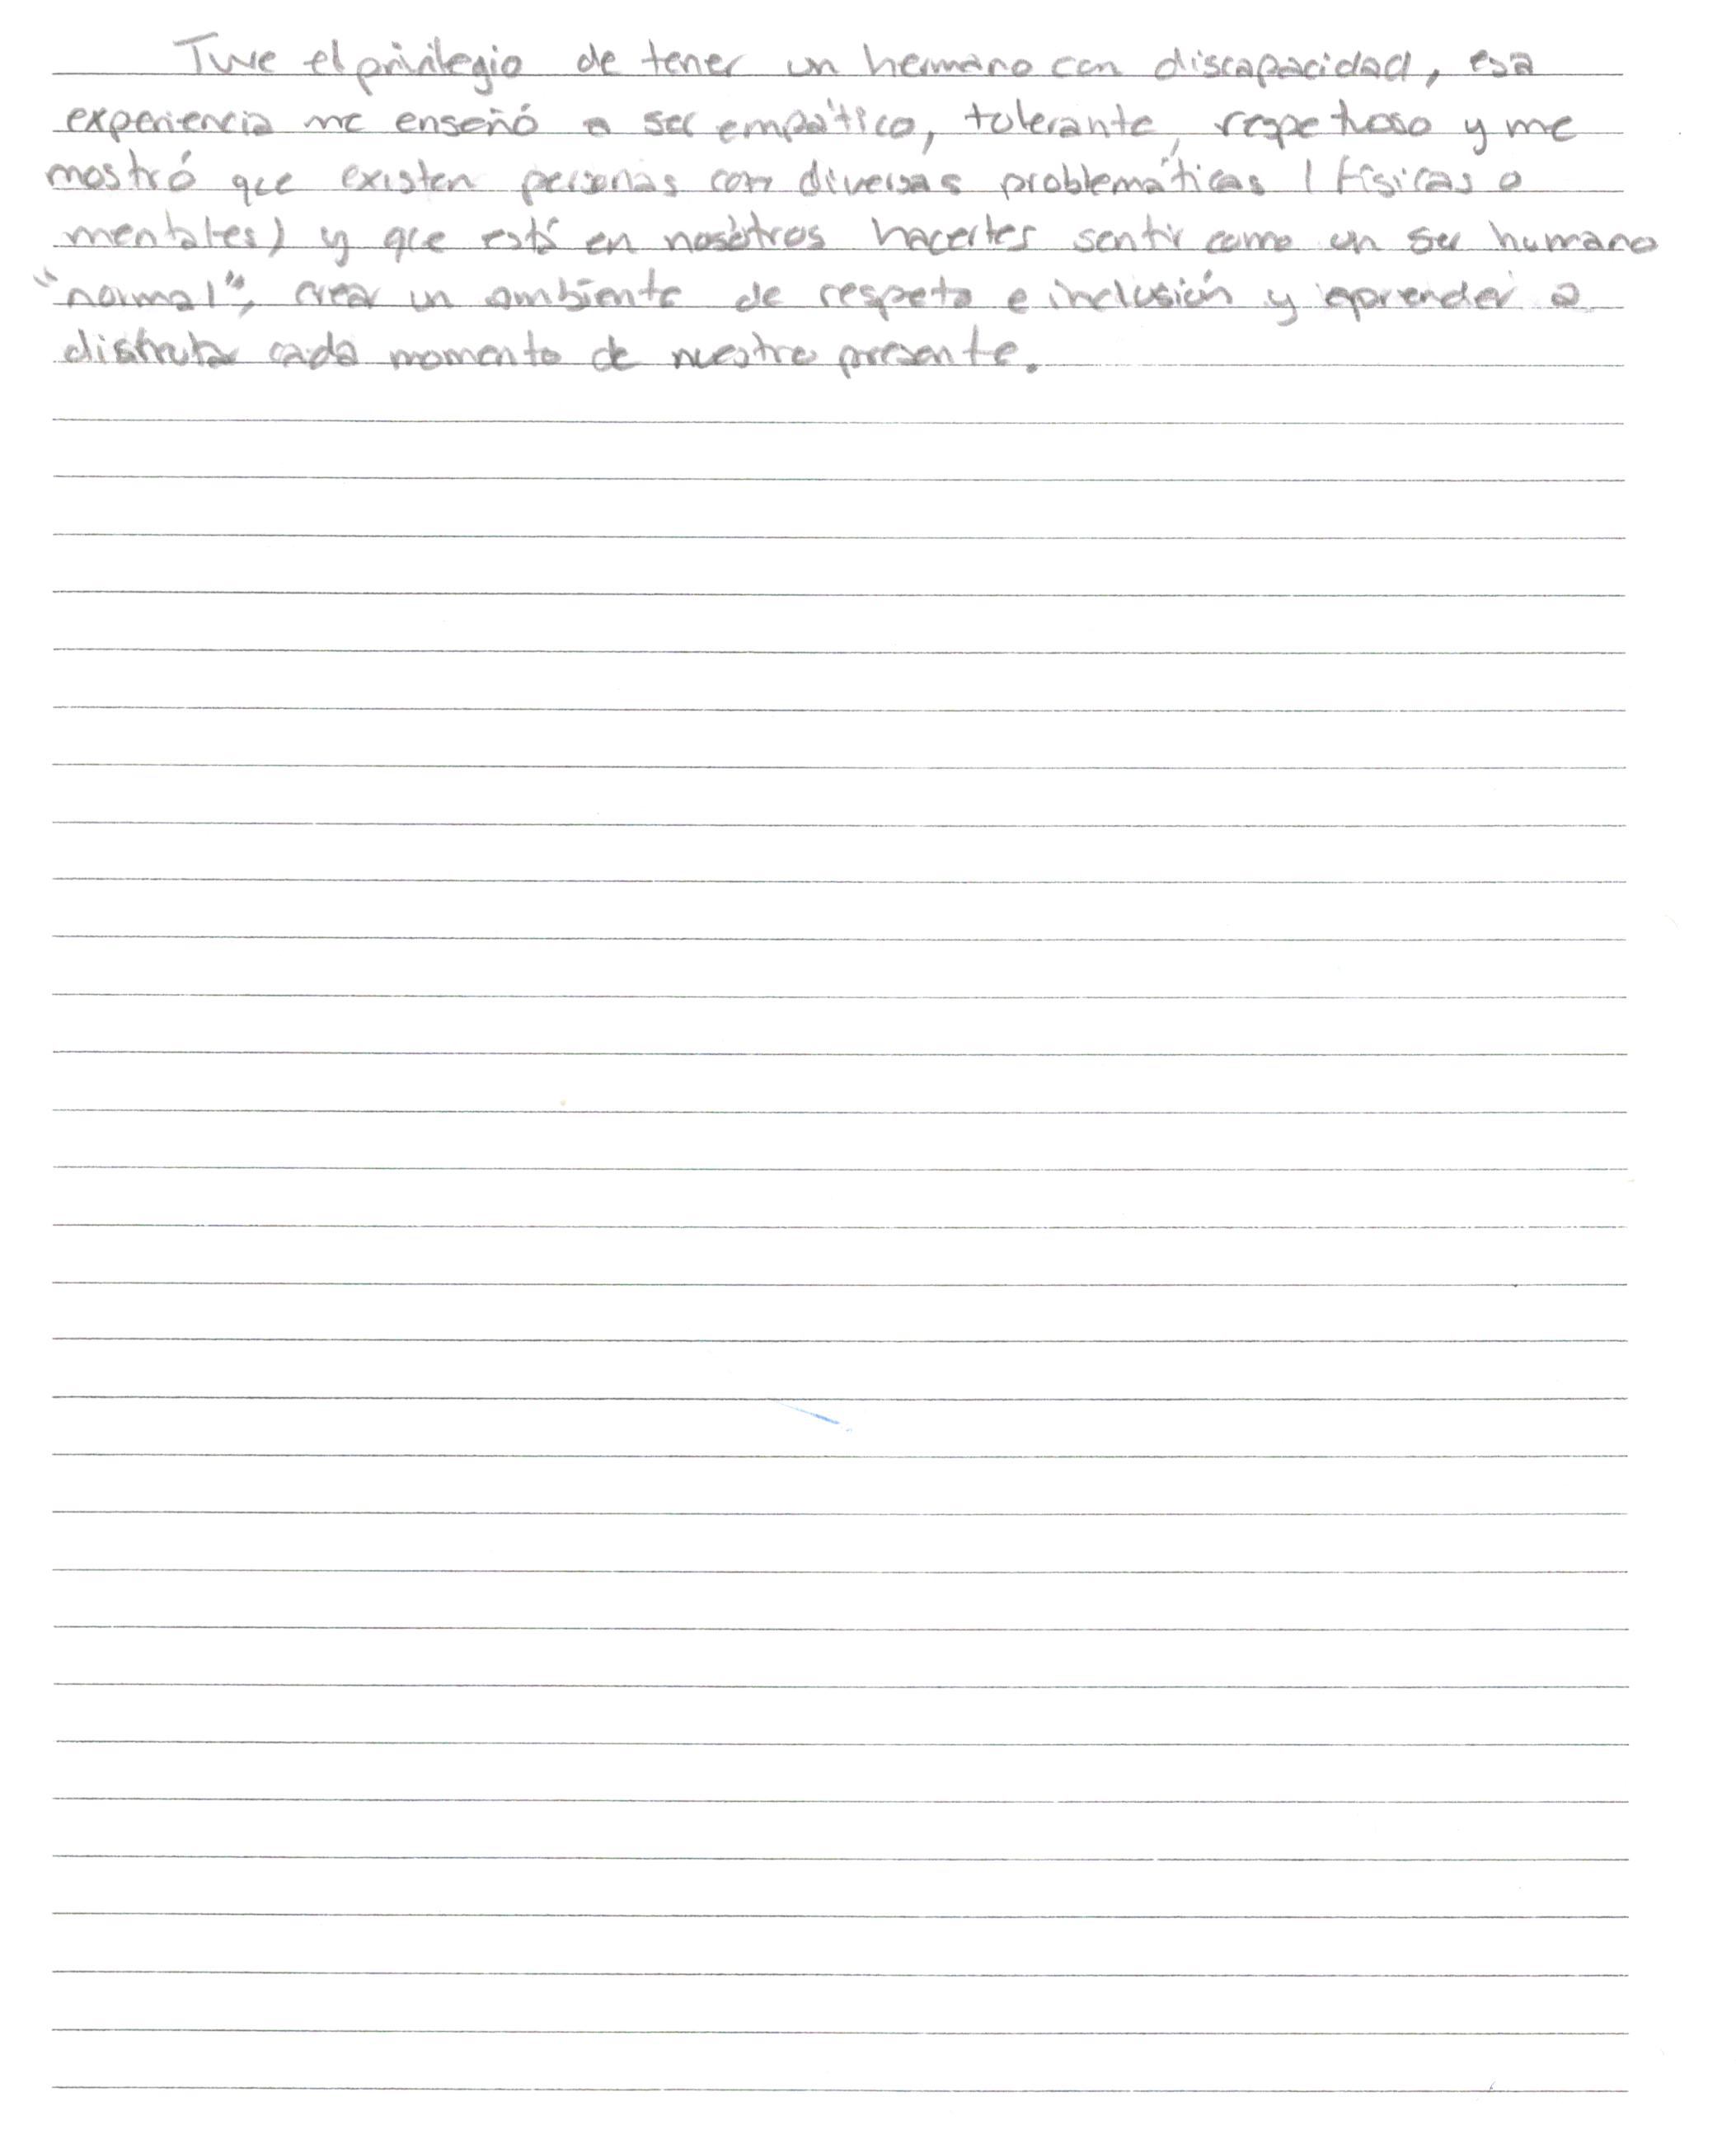 Tuve el privilegio de tener un hermano con discapacidad, esa
experiencia me enseñó a ser empático, tolerante, respetuoso y me
mostró que existen personas con diversas problemáticas (físicas o
mentales) y que está en nosotros hacerles sentir como un ser humano
"normal", crear un ambiente de respeto e inclusión y aprender a
disfrutar cada momento de nuestro presente.